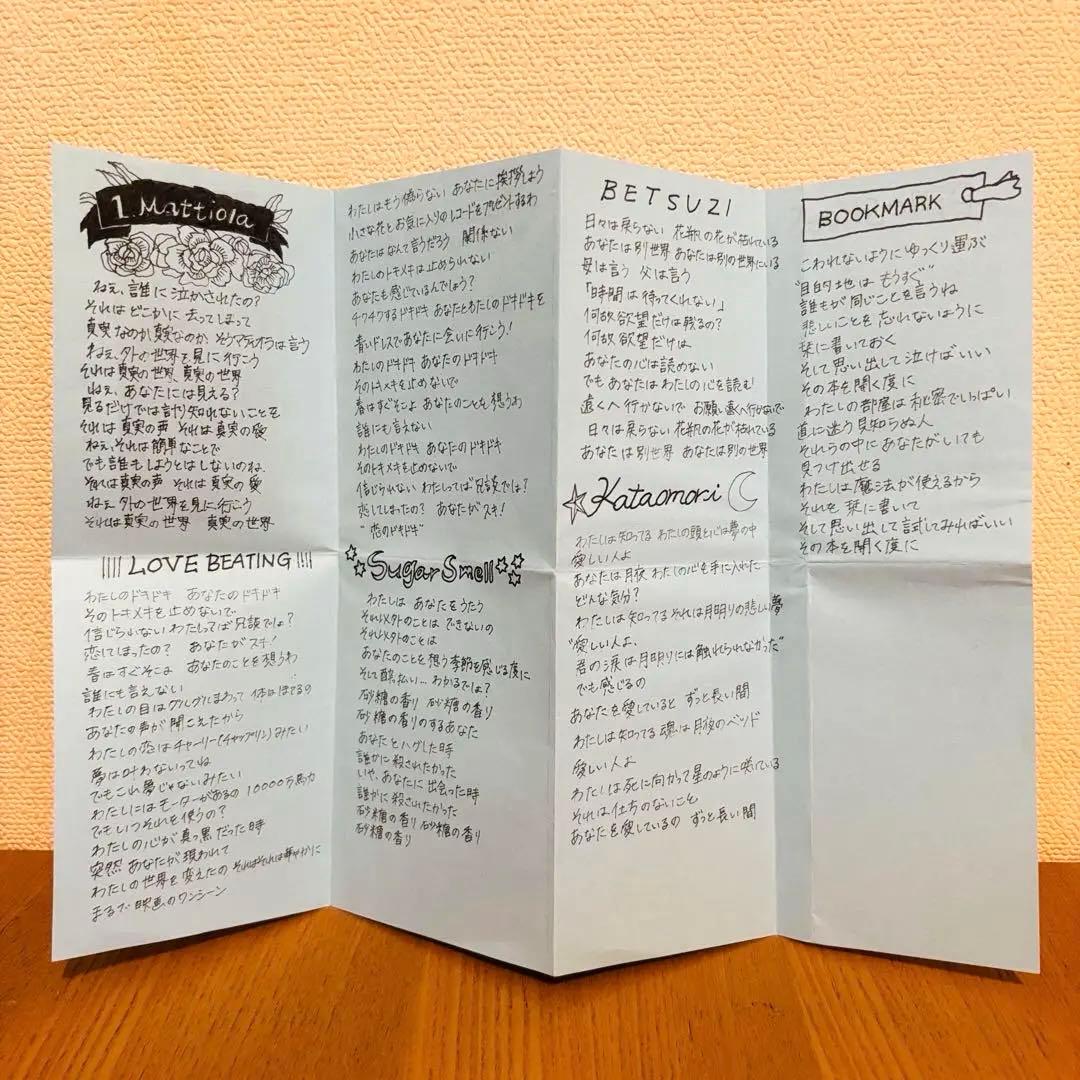 1. Mattiola
ねぇ、誰に泣かされたの？
それはどこかに去ってしまって
真実なのか真実なのか、そうマティオラは言う
ねぇ、外の世界を見に行こう
それは真実の世界、真実の世界
ねぇ、あなたには見える？
見るだけでは計り知れないことを
それは真実の声 それは真実の愛
ねぇ、それは簡単なことで
でも誰もしようとはしないのね、
それは真実の声 それは真実の愛
ねぇ外の世界を見に行こう
それは真実の世界 真実の世界
LOVE BEATING
わたしのドキドキ あなたのドキドキ
そのトキメキを止めないで
信じられないわたしってば冗談でしょ？
恋してしまったの？ あなたがスキ！
春はすぐそこよ あなたのことを想うわ
誰にも言えない
わたしの目はグルグルまわって 体はほてるの
あなたの声が聞こえたから
わたしの恋はチャーリー(チャップリン)みたい
夢は叶わないってね
でもこれ夢じゃないみたい
わたしにはモーターがあるの 10000万馬力
でもいつそれを使うの？
わたしの心が真っ黒だった時
突然 あなたが現われて
わたしの世界を変えたの それはそれは華やかに
まるで映画のワンシーン
わたしはもう偽らない あなたに挨拶しよう
小さな花とお気に入りのレコードをプレゼントするわ
あなたはなんて言うだろう 関係ない
わたしのトキメキは止められない
あなたも感じているんでしょう？
チクチクするドキドキ あなたとわたしのドキドキを
青いドレスであなたに会いに行こう！
わたしのドキドキ あなたのドキドキ
そのトキメキを止めないで
春はすぐそこよ あなたのことを想うわ
誰にも言えない
わたしのドキドキ あなたのドキドキ
そのトキメキを止めないで
信じられない わたしってば冗談でしょ？
恋してしまったの？ あなたがスキ！
“恋のドキドキ”
Sugar Smell
わたしは あなたをうたう
それ以外のことは できないの
それ以外のことは
あなたのことを想う季節を感じる度に
そして酔っ払い… わかるでしょ？
砂糖の香り 砂糖の香り
砂糖の香りのするあなた
あなたとハグした時
誰かに殺されたかった
いや、あなたに出会った時
誰かに殺されたかった
砂糖の香り 砂糖の香り
砂糖の香り
BETSUZI
日々は戻らない 花瓶の花が枯れている
あなたは別世界 あなたは別の世界にいる
母は言う 父は言う
「時間は待ってくれない」
何故欲望だけは残るの？
何故 欲望だけは
あなたの心は読めない
でもあなたはわたしの心を読む
遠くへ行かないで お願い遠くへ行かないで
日々は戻らない 花瓶の花が枯れている
あなたは別世界 あなたは別の世界
Kataomori
わたしは知ってる わたしの頭と心は夢の中
愛しい人よ
あなたは月夜 わたしの心を手に入れた
どんな気分？
わたしは知ってる それは月明りの悲しい夢
“愛しい人よ、
君の涙は月明りには触れられなかった”
でも感じるの
あなたを愛していると ずっと長い間
わたしは知ってる 魂は月夜のベッド
愛しい人よ
わたしは死に向かって星のように咲いている
それは仕方のないこと
あなたを愛しているの ずっと長い間
BOOKMARK
こわれないようにゆっくり運ぶ
“目的地は もうすぐ”
誰もが同じことを言うね
悲しいことを忘れないように
栞に書いておく
そして思い出して泣けばいい
その本を開く度に
わたしの部屋は秘密でいっぱい
道に迷う見知らぬ人
それらの中にあなたがいても
見つけ出せる
わたしは魔法が使えるから
それを栞に書いて
そして思い出して試してみればいい
その本を開く度に